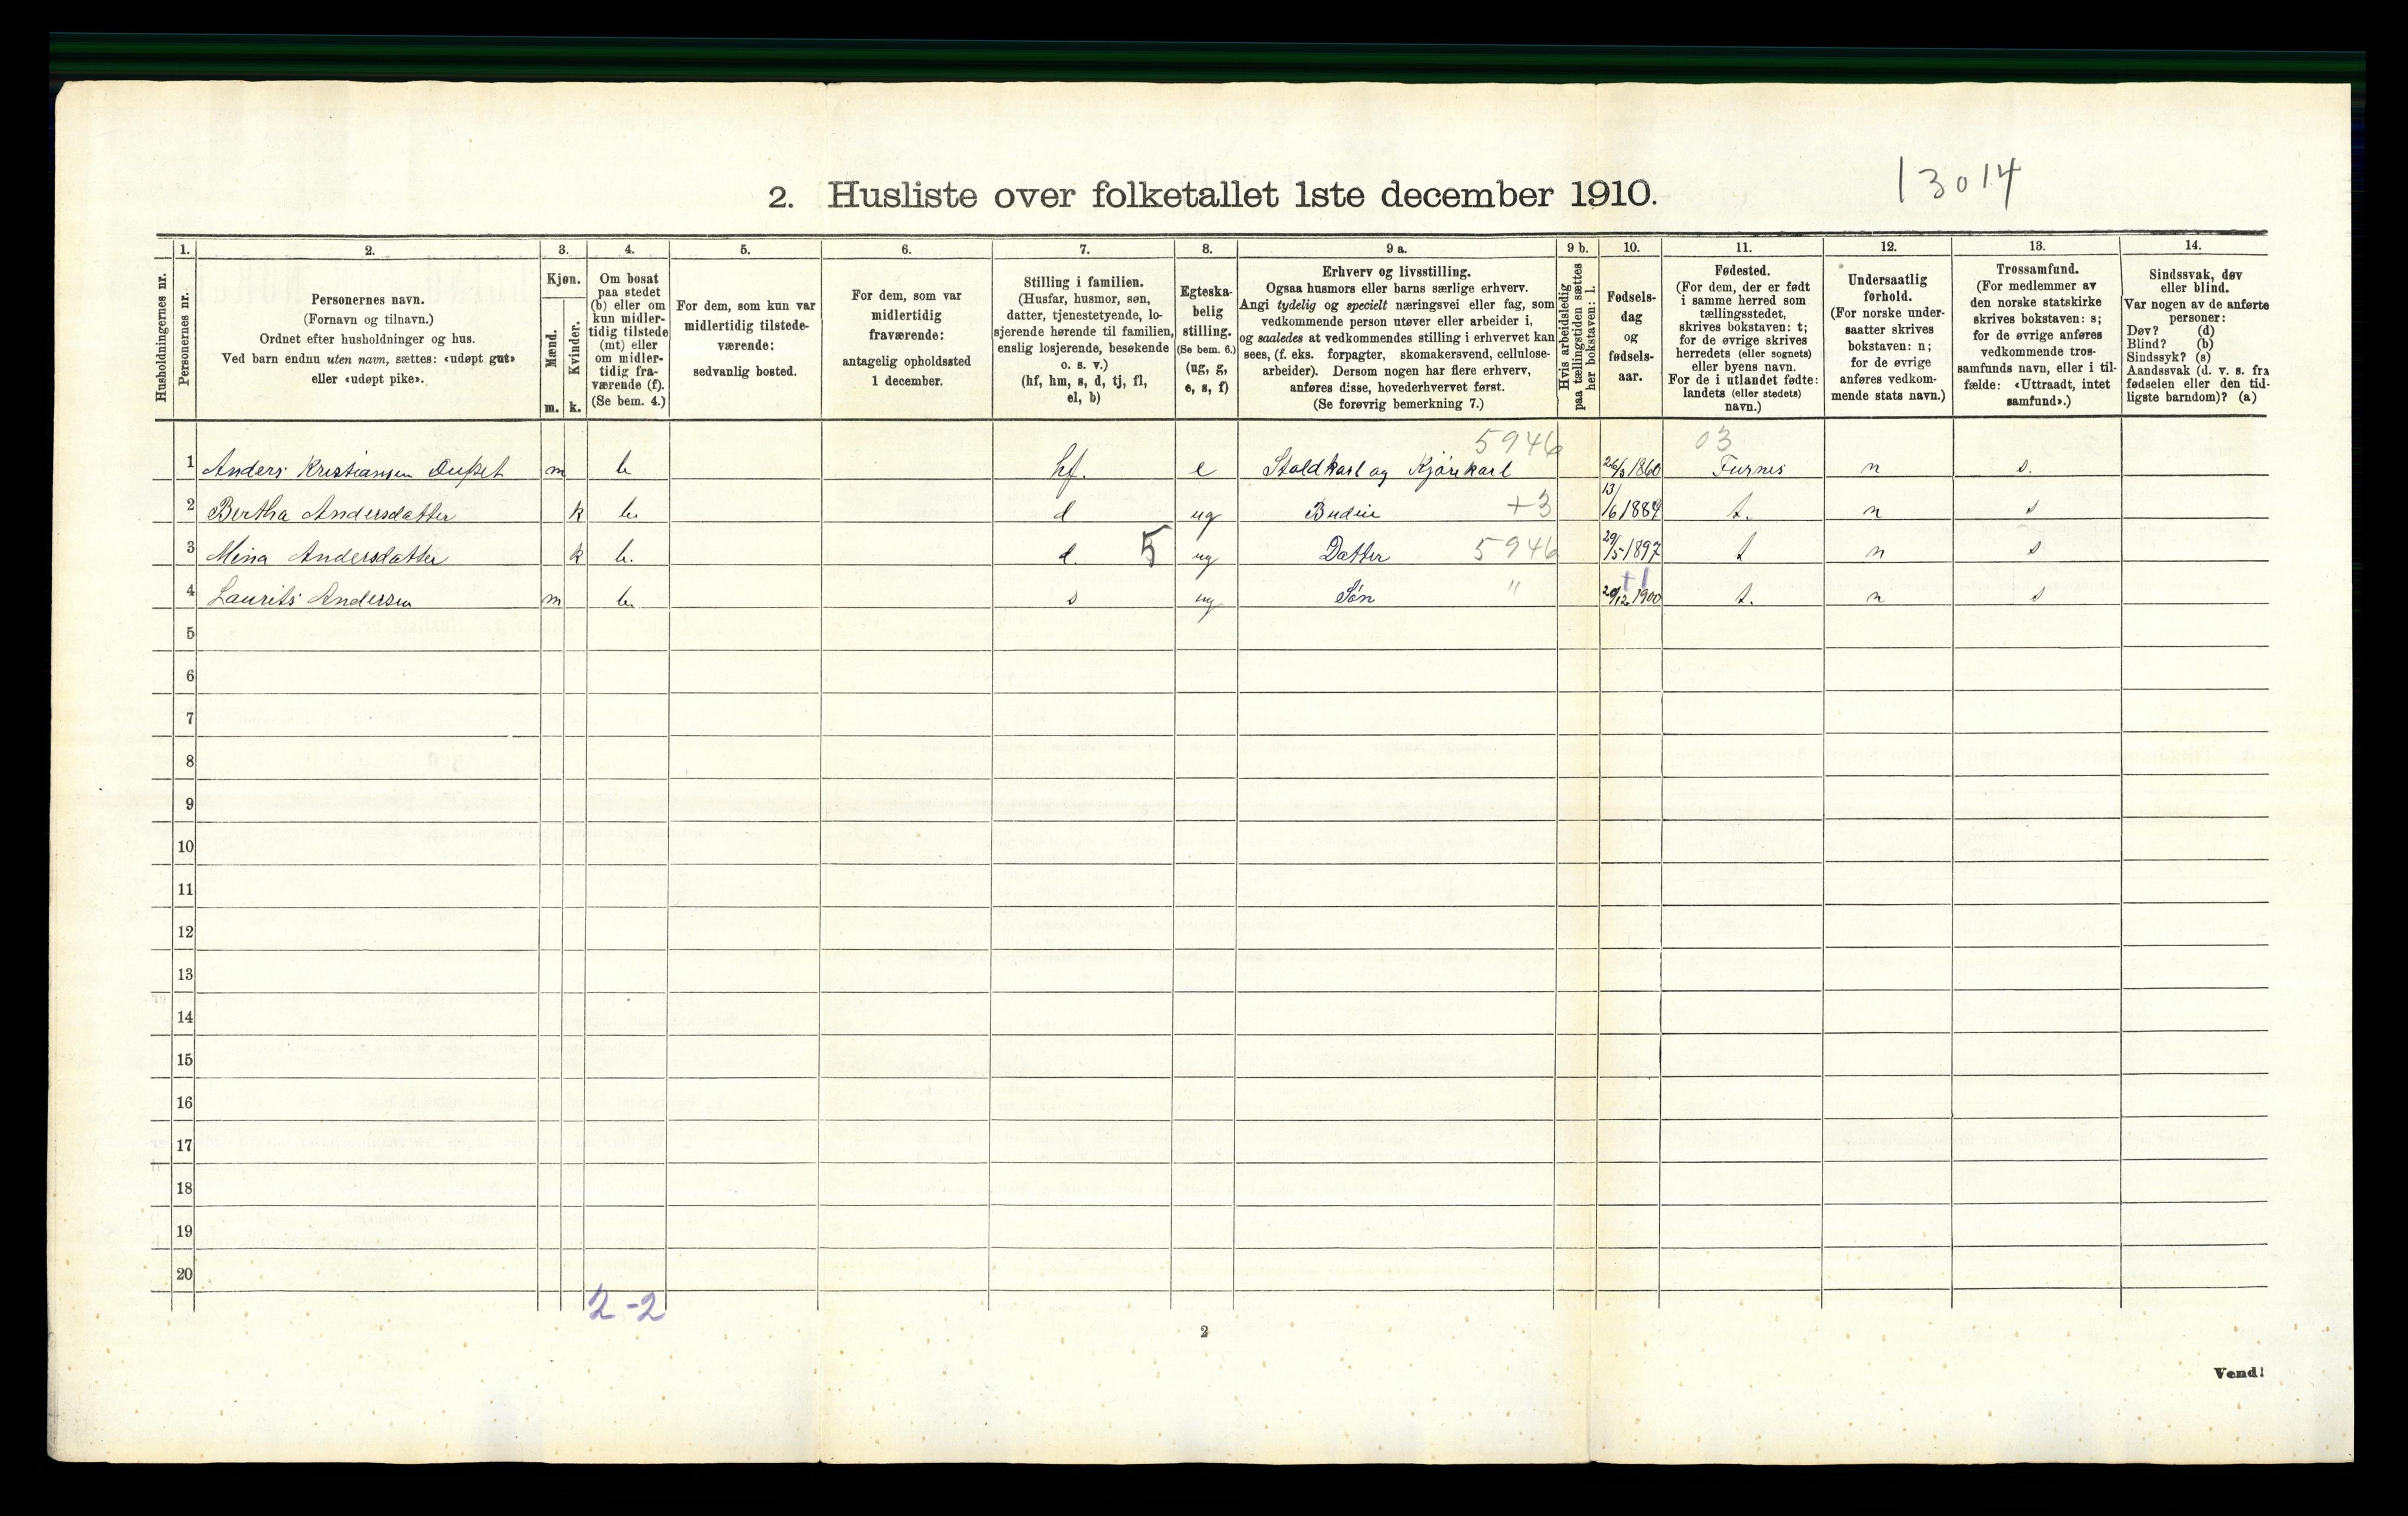 2. Husliste over folketallet 1ste december 1910.
13014
Husholdningernes nr.
1.
Personernes nr.
2.
Personernes navn.
(Fornavn og tilnavn.)
Ordnet efter husholdninger og hus.
Ved barn endnu uten navn, sættes: «udøpt gut»
eller «udøpt pike».
3.
Kjøn.
Mænd.
m.
Kvinder.
k.
4.
Om bosat
paa stedet
(b) eller om
kun midler-
tidig tilstede
(mt) eller
om midler-
tidig fra-
værende (f).
(Se bem. 4.)
5.
For dem, som kun var
midlertidig tilstede-
værende:
sedvanlig bosted.
6.
For dem, som var
midlertidig
fraværende:
antagelig opholdssted
1 december.
7.
Stilling i familien.
(Husfar, husmor, søn,
datter, tjenestetyende, lo-
sjerende hørende til familien,
enslig losjerende, besøkende
o. s. v.)
(hf, hm, s, d, tj, fl,
el, b)
8.
Egteska-
belig
stilling.
(Se bem. 6.)
(ug, g,
e, s, f)
9 a.
Erhverv og livsstilling.
Ogsaa husmors eller barns særlige erhverv.
Angi tydelig og specielt næringsvei eller fag, som
vedkommende person utøver eller arbeider i,
og saaledes at vedkommendes stilling i erhvervet kan
sees, (f. eks. forpagter, skomakersvend, cellulose-
arbeider). Dersom nogen har flere erhverv,
anføres disse, hovederhvervet først.
(Se forøvrig bemerkning 7.)
9 b.
Hvis arbeidsledig
paa tællingstiden sættes
her bokstaven: l.
10.
Fødsels-
dag
og
fødsels-
aar.
11.
Fødested.
(For dem, der er født
i samme herred som
tællingsstedet,
skrives bokstaven: t;
for de øvrige skrives
herredets (eller sognets)
eller byens navn.
For de i utlandet fødte:
landets (eller stedets)
navn.)
12.
Undersaatlig
forhold.
(For norske under-
saatter skrives
bokstaven: n;
for de øvrige
anføres vedkom-
mende stats navn.)
13.
Trossamfund.
(For medlemmer av
den norske statskirke
skrives bokstaven: s;
for de øvrige anføres
vedkommende tros-
samfunds navn, eller i til-
fælde: «Uttraadt, intet
samfund».)
14.
Sindssvak, døv
eller blind.
Var nogen av de anførte
personer:
Døv? (d)
Blind? (b)
Sindssyk? (s)
Aandssvak (d. v. s. fra
fødselen eller den tid-
ligste barndom)? (a)
5946 03
1 Anders Kristiansen m b. hf. e Staldkarl og Kjørekarl 1860 Furnes n s.
2 Bertha Andersdatter k b. d ug Budeie +3 13/6 t. n s
3 Mina Andersdatter k b. d. 5 ug Datter 5946 29/5 1897 t n s
+1
4 Laurits Andersen m b. s ug Søn " 1900 t. n s
5
6
7
8
9
10
11
12
13
14
15
16
17
18
19
20
2-2
2
Vend!